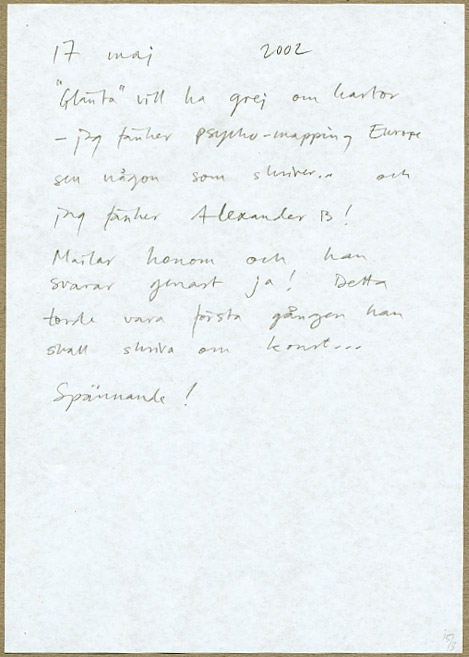 17 maj 2002
"Glänta" vill ha grej om kartor
– jag tänker psycho-mapping Europe
sen någon som skriver... och
jag tänker Alexander B!
Mailar honom och han
svarar genast ja! Detta
torde vara första gången han
skall skriva om konst...
Spännande!